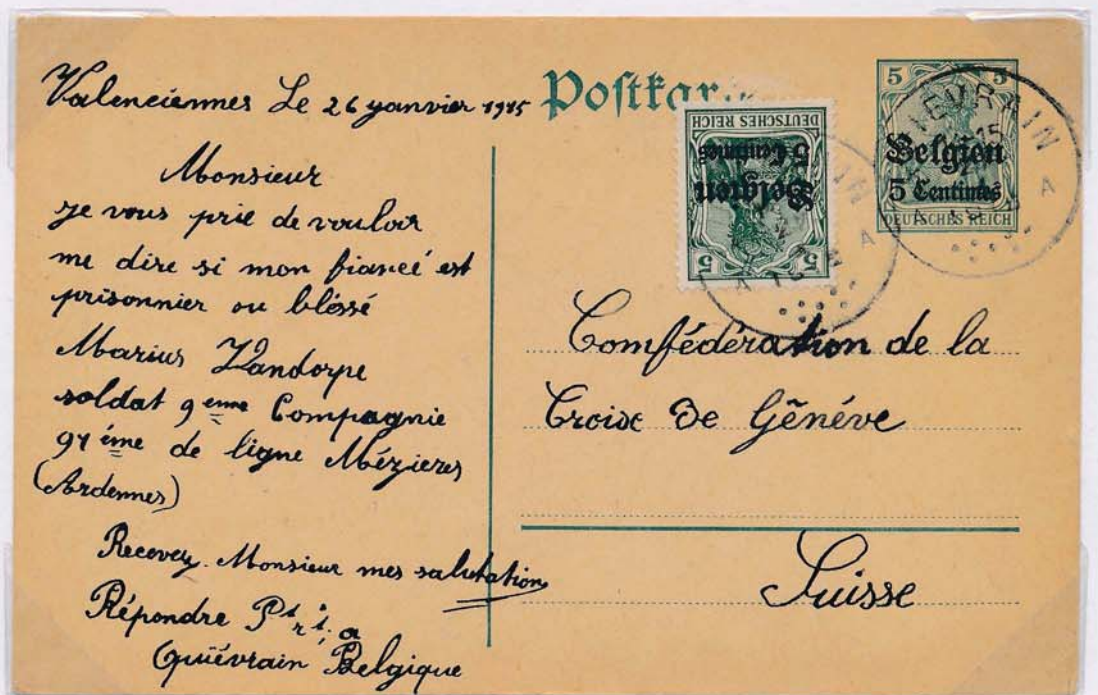 Valenciennes Le 26 yanvier 1915
Monsieur
je vous prie de vouloir
me dire si mon fiancé est
prisonnier ou bléssé
Marius Vandorpe
soldat 9 eme Compagnie
91 éme de ligne Mézieres
(Ardennes)
Recevez. Monsieur mes salutation
Répondre
Quiévrain Belgique
Postkar
DEUTSCHES REICH
5 Centimes
Belgien
5 5
5 5
Belgien
5 Centimes
DEUTSCHES REICH
QUIEVRAIN
Comfédération de la
Croix De Génève
Suisse